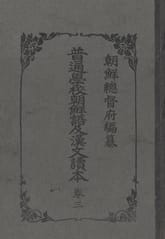 朝鮮總督府編纂
普通學校朝鮮語及漢文讀本 卷三